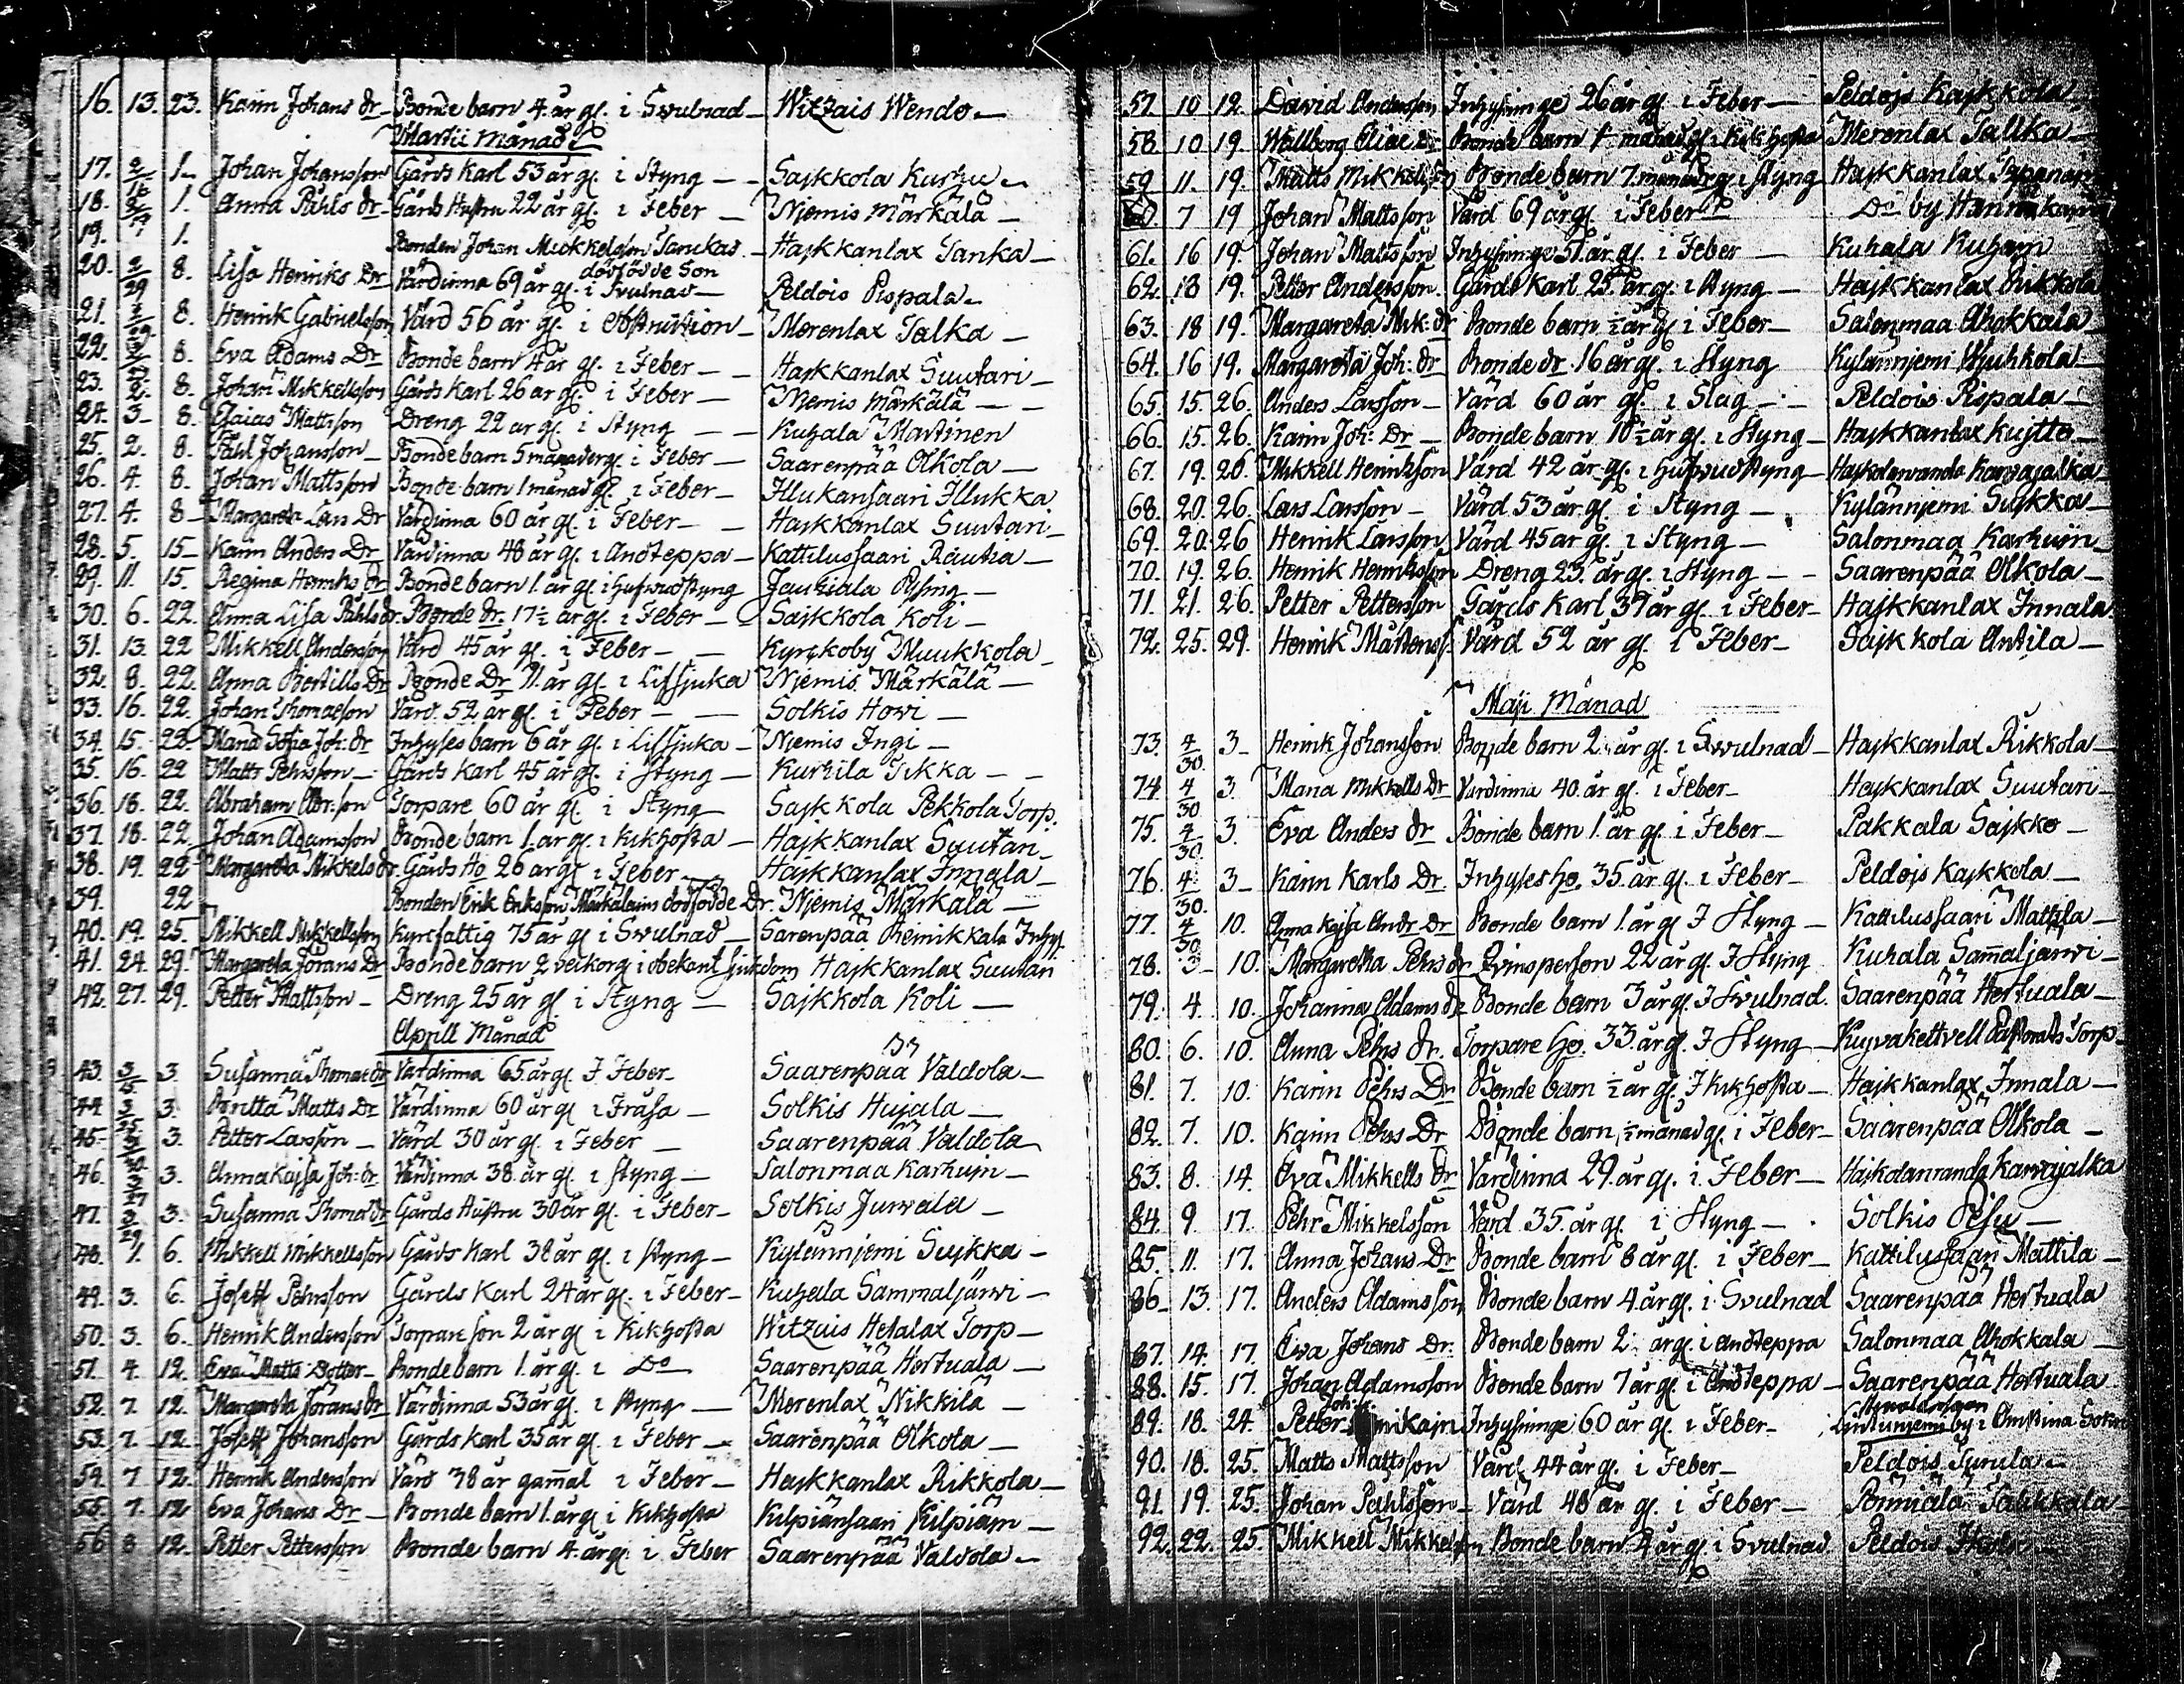 16. 13. 23. Karin Johans dr Bonde barn 4 år gl. i Swulnad Witzais Wendo
Martii Månad
17. 2/16 1. Johan Johansson Gårds Karl 53 år gl. i Styng Sajkkola Kurhu
18. 1. Anna Påhls dr Gårds Hustru 22 år gl. i Feber Njemis Märkälä
19. 1. Bonden Johan Mickelsson Tanukas dödfödde Son Hajkkanlax Tanka
20. 2/29 8. Lisa Henriks Dr Värdinna 69 år gl. i Svulnad Peldois Pispala
21. 8. Henrik Gabrielsson Värd 56 år gl. i Obstruction Merenlax Talka
22. 8. Eva Adams Dr Bonde barn 4 år gl. i Feber Hajkkanlax Suutari
23. 2. 8. Johan Mikkellsson Gårds Karl 26 år gl. i Feber Njemis Märkälä
24. 3 8. Esaias Mattsson Dreng 22 år gl. i Styng Kuhala Martinen
25. 2. 8. Påhl Johansson Bonde barn 5 månader gl. i Feber Saarenpää Olkola
26. 4. 8. Johan Mattsson Bonde barn 1 månad gl. i Feber Illukansaari Illukka
27. 4. 8 Margareta Lars Dr Värdinna 60 år gl. i Feber Hajkkanlax Suutari
28. 5. 15 Karin Anders Dr Värdinna 48 år gl. i Andteppa Kattilussaari Rautia
29. 11. 15. Regina Henriks dr Bonde barn 1. år gl. i Hufwudstyng Jauhiala
30. 6. 22. Anna Lisa Påhls dr. Bonde dr. 17½ år gl. i Feber Sajkkola Koli
31. 13. 22 Mikkell Andersson Värd 45 år gl. i Feber Kyrckoby Muukkola
32. 8. 22. Anna Bertills Dr Bonde Dr 11. år gl. i Lifsjuka Njemis Märkälä
33. 16. 22. Johan Thomasson Värd. 52 år gl. i Feber Solkis Howi
34. 15. 22. Maria Sofia Joh: dr Inhyses barn 6 år gl. i Lifsjuka Njemis Ingi
35. 16. 22 Matts Pehrsson Gårds Karl 45 år gl. i Styng Kurhila Tikka
36. 18. 22. Abraham Abr:son Torpare 60 år gl i Styng Sajkkola Pekkola Torp.
37. 18. 22. Johan Adamsson Bonde barn 1. år gl. i Kikhosta Hajkkanlax Suutari
38. 19. 22 Margareta Mikkels dr. Gårds Ho 26 år gl. i Feber Hajkkanlax Innala
39. 22 Bonden Erik Eriksson Märkäläins dödfödde Dr. Njemis Märkälä
40. 19. 25. Mikkell Mikkellsson Kyrcfattig 75 år gl i Swulnad Sarenpää Reinikkala Inhys.
41. 24. 29. Margareta Jörans Dr Bonde barn 2 veckor g. i obekant sjukdom Hajkkanlax Suutari
42. 27. 29. Petter Mattsson Dreng 25 år gl i Styng Sajkkola Koli
Aprill Månad
43. 3. Susanna Thomas dr Värdinna 65. år gl. I Feber Saarenpää Valdola
44 3. Britta Matts Dr Värdinna 60 år gl i Frasa Solkis Hujala
45. 3. Petter Larsson Värd 30 år gl. i Feber Saarenpää Valdola
46. 3. Anna Kajsa Joh: dr Värdinna 38. år gl. i Styng Salonmaa Karhuin
47. 3. Susanna Thomas dr Gårds Hustru 30 år gl. i Feber Solkis Jurvala
48. 1. 6. Mikkell Mikkellsson Gårds Karl 38 år gl. i Styng Kylännjemi Sujkka
49. 3. 6. Joseff Pehrsson Gårds Karl 24 år gl. i Feber Kuhala Sammaljärwi
50. 3. 6. Henrik Andersson Torpare son 2 år gl i Kikhosta Witzais Hetalax Torp
51. 4. 12. Eva Matts Dotter Bonde barn 1. år gl. i Do Saarenpää Hertuala
52. 7. 12. Margareta Jörans dr Värdinna 53 år gl. i Styng Merenlax Nikkilä
53. 7. 12. Joseff Johansson Gårds Karl 35 år gl. i Feber Saarenpää Olkola
54. 7. 12 Henrik Andersson Värd 38 år gammal i Feber Hajkkanlax Rikkola
55. 7. 12 Eva Johans Dr Bonde barn 1. år gl i Kikhosta Kilpiänsaari Kilpiäin
56 8 12. Petter Pettersson Bonde barn 4. år gl. i Feber Saarenpää Valdola
57. 10 12. David Andersson Inhysinge 26 år gl. i Feber Peldojs Kajkkola
58. 10 19. Wallborg Eliae dr Bonde barn månad gl. i Kikhosta Merenlax Talka
59. 11. 19. Matts Mikkelsson Bonde barn 7. månader gl. i Styng Hajkkanlax
60. 7 19 Johan Mattsson Värd 69 år gl. i Feber Do by
61. 16 19. Johan Mattsson Inhysinge 51 år gl. i Feber Kuhala Kuhain
62. 18 19. Petter Andersson. Gårds Karl 25. år. g. i Styng Hajkkanlax Rikkola
63. 18 19. Margareta Mik: dr Bonde barn ½ år gl i Feber Salonmaa Ahokkala
64. 16 19. Margareta Joh: dr Bonde dr. 16 år gl. i Styng Kylännjemi
65. 15. 26. Anders Larsson Värd 60 år gl. i Slag Peldois Pispala
66. 15. 26. Karin Joh: Dr Bonde barn 10½ år gl. i Styng Hajkkanlax Kujtto
67. 19. 26. Mikkell Henriksson Värd 42 år gl. i Hufwudstyng Hajkolanranda Karvajalka
68. 20. 26. Lars Larsson Värd. 53 år. gl. i Styng Kylännjemi Sujkka
69. 20. 26 Henrik Larsson Värd 45 år gl. i Styng Salonmaa Karhuin
70. 19. 26. Henrik Henriksson Dreng 23. år gl. i Styng Saarenpää Olkola
71. 21. 26. Petter Pettersson Gårds Karl 37 år gl. i Feber Hajkkanlax Innala.
72. 25. 29. Henrik Mårtenss. Värd 52 år gl. i Feber Sajkkola Antila
Maji Månad
73. 4/30. 3 Henrik Johansson Bonde barn 2. år gl. i Swulnad Hajkkanlax Rikkola
74. 4/30 3. Maria Mikkells Dr Värdinna 40. år gl. i Feber Hajkkanlax Suutari
75. 4/30. 3. Eva Anders dr Bonde barn 1. år gl. i Feber Pakkala Sajkko
76. 4/30. 3 Karin Karls Dr Inhyses Ho. 35. år gl. i Feber Peldojs Kajkkola
77. 4/30 10. Anna Kajsa Andr. Dr Bonde barn 1. år gl I Styng Kattilussaari Mattila
78. 3 10. Margaretha Pehrs dr Qvinsperson 22 år gl. I Styng Kuhala Sammaljärwi
79. 4 10. Johanna Adams dr Bonde barn 3 år gl. I Svulnad. Saarenpää Hertuala
80. 6. 10. Anna Pehrs dr. Torpare Ho. 33. år gl. I Styng Torp
81. 7. 10. Karin Pehrs Dr Bonde barn ½ år gl. I Kikhosta Hajkkanlax Innala
82. 7. 10. Karin Pehrs Dr Bonde barn, ½ månad gl. i Feber Saarenpää Olkola
83. 8. 14. Eva Mikkells dr Värdinna 29. år gl. i. Feber Hajkolanranda Karvajalka
84. 9 17. Pehr Mikkelsson Värd 35. år gl. i Styng Solkis Pesu
85. 11. 17. Anna Johans Dr Bonde barn 8 år gl. i Feber Kattilussaari Mattila
86 13. 17. Anders Adamsson Bonde barn 4. år gl. i Svulnad Saarenpää Hertuala
87. 14. 17. Eva Johans Dr. Bonde barn 2 år gl. i Andteppa Salonmaa Ahokkala
88. 15. 17. Johan Adamsson Bonde barn 7 år gl. i Andteppa Saarenpää Hertuala
89. 18. 24. Petter Joh:s. Inhysinge 60 år gl. i Feber by i
90. 18. 25. Matts Mattsson Värd. 44 år gl. i Feber Peldois
91. 19. 25. Johan Påhlsson Värd 48 år gl. i Feber
92. 22. 25. Mikkell Mikkelsson Bonde barn 4 år gl i Svulnad. Peldois